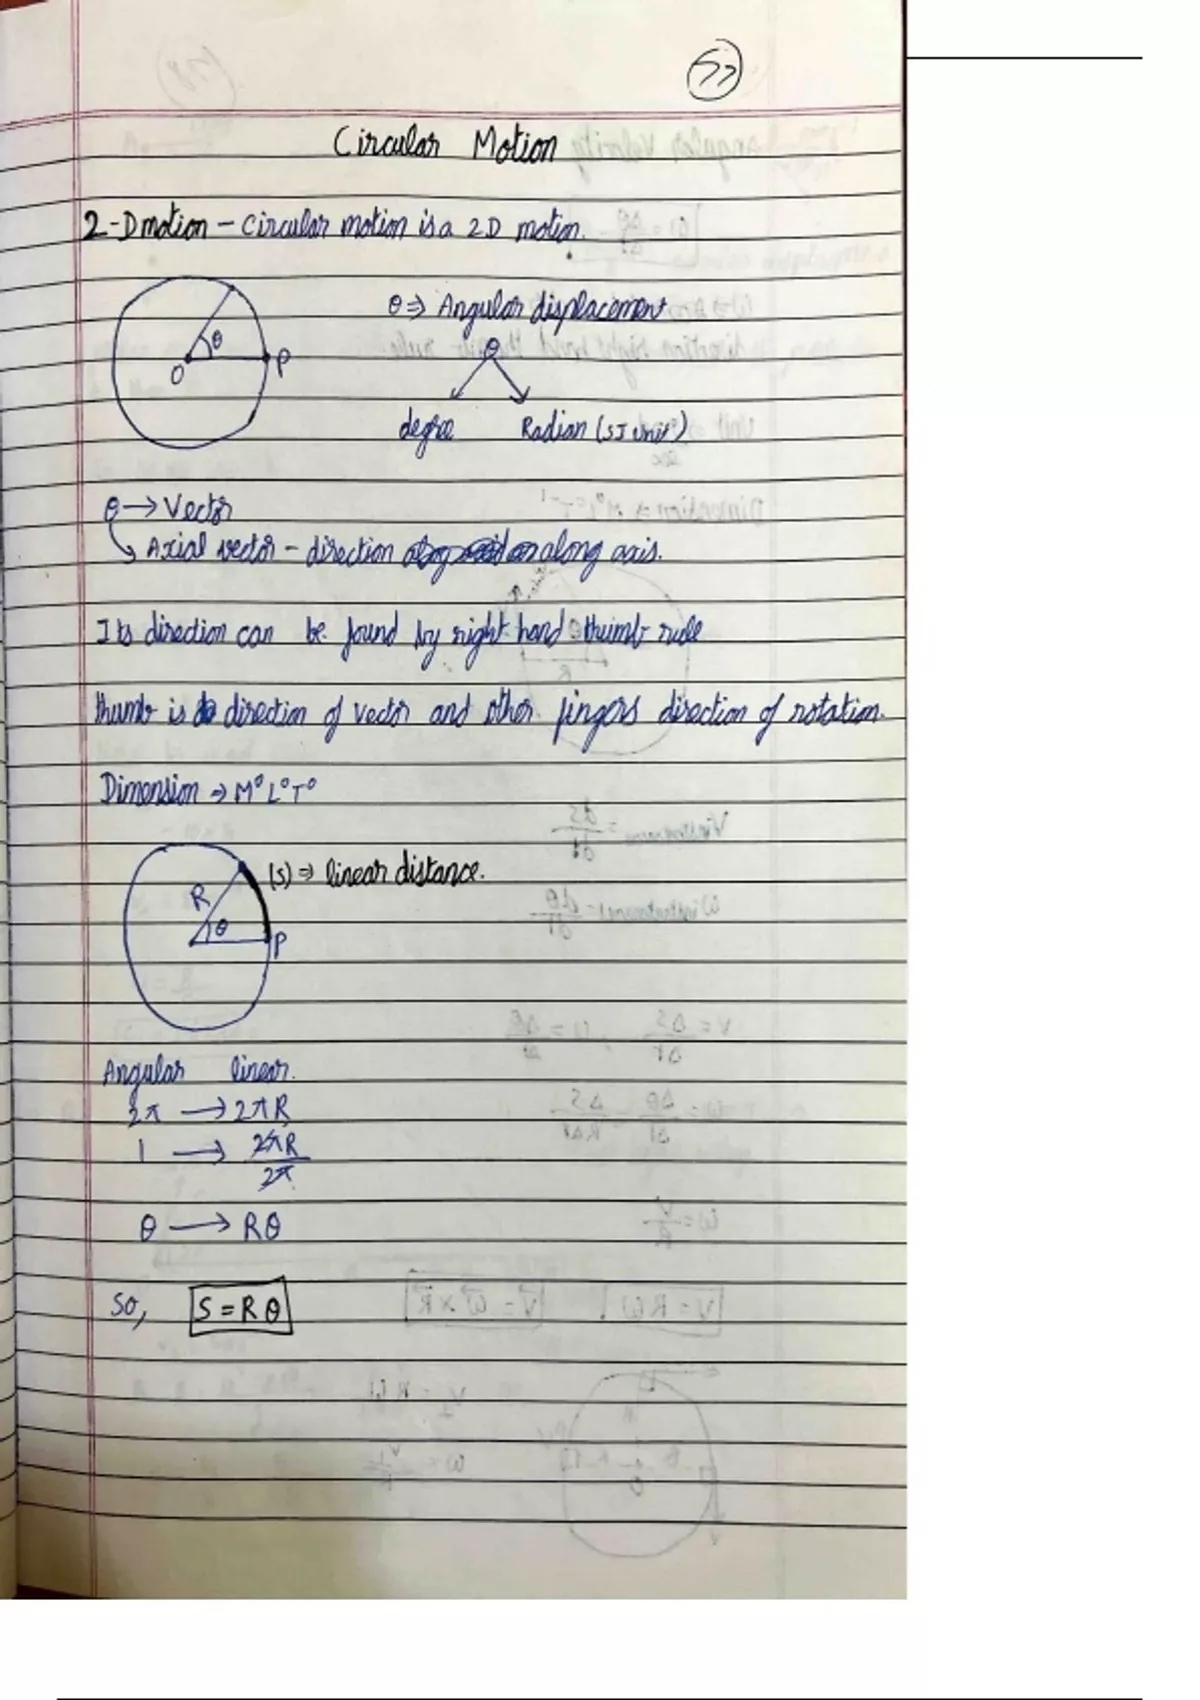 57
Circular Motion
2-D motion – Circular motion is a 2D motion.
θ ⇒ Angular displacement
θ
O
P
θ
degree
Radian (SI unit)
θ → Vector
Axial vector – direction along axis.
Its direction can be found by right hand thumb rule
thumb is direction of vector and other fingers direction of rotation.
Dimension ⇒ M⁰L⁰T⁰
(S) ⇒ linear distance.
R
θ
P
Angular linear.
2π → 2πR
1 → 2πR/2π
θ → Rθ
So, S = Rθ